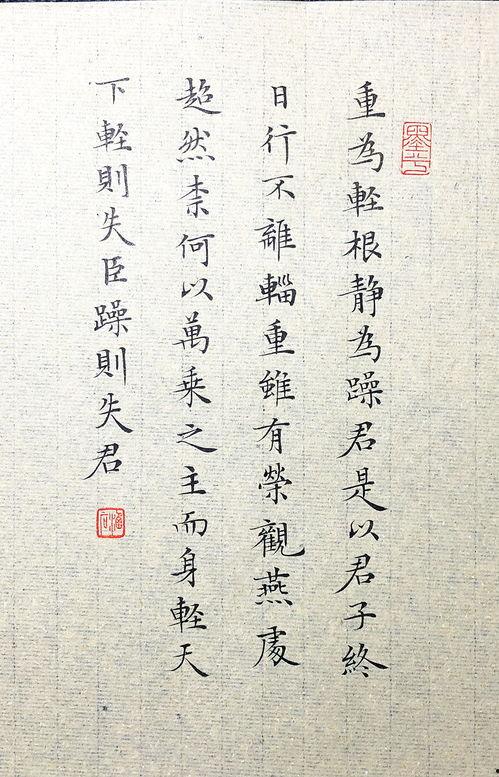 重為軽根静為躁君是以君子終
日行不離輜重雖有榮觀燕處
超然柰何以萬乗之主而身軽天
下軽則失臣躁則失君